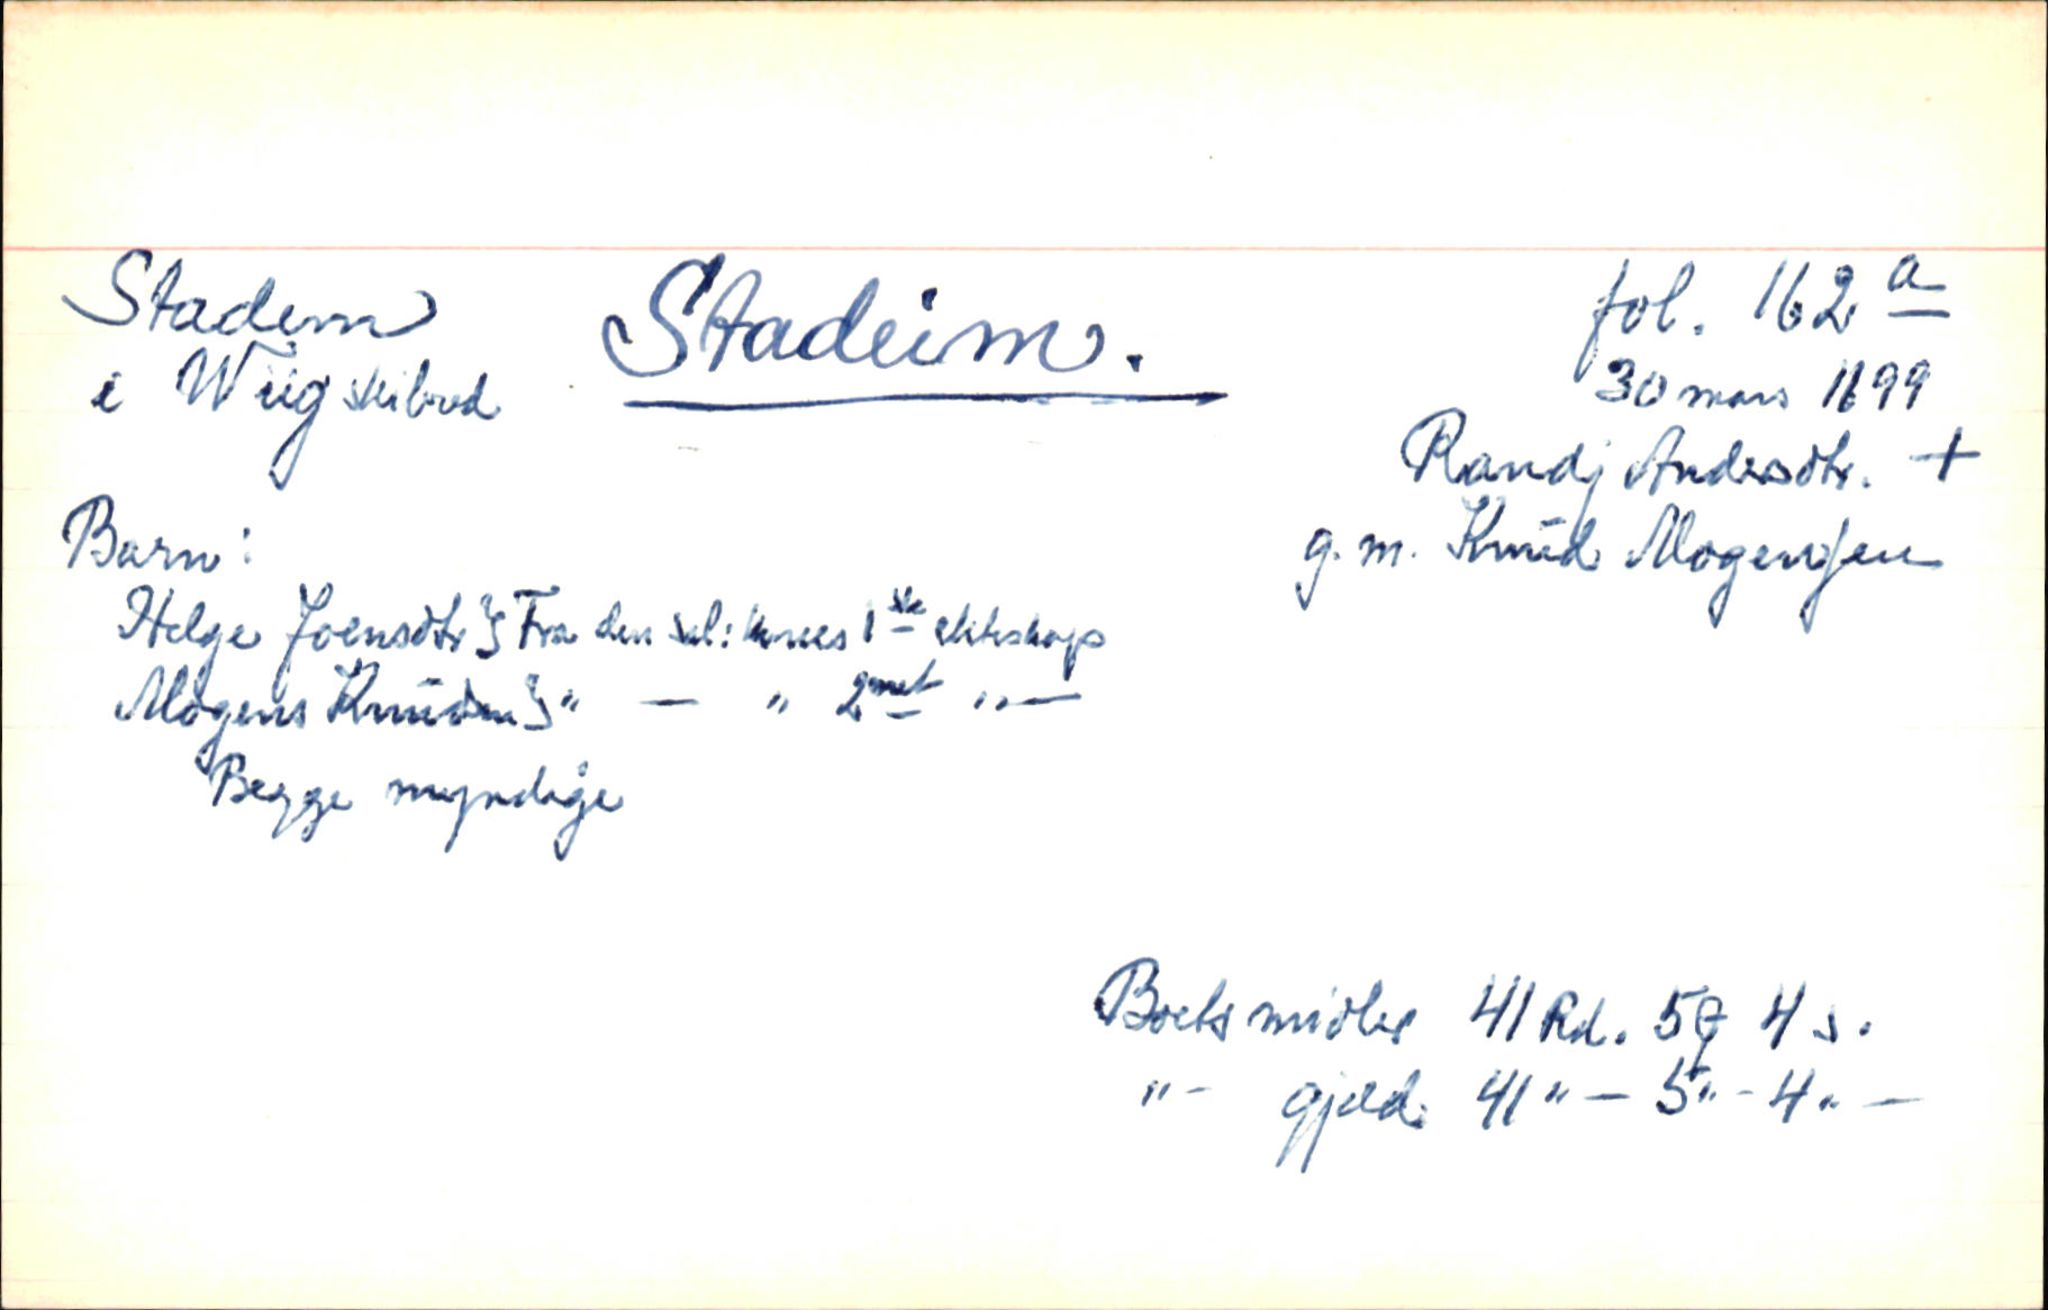 Stadem
i Wiig skibred
Stadeim.
fol. 162 a
30 mars 1699
Randj Andersdtr. +
g. m. Knŭd Mogensen
Barn:
Helge Joensdtr } Fra den sal: 1ste ekteskap
Mogens Knŭdsen } " — " 2net " —
Begge myndige
Boets midler 41 Rd. 5 4 s.
" - gjeld. 41 " — 5 " - 4 " —